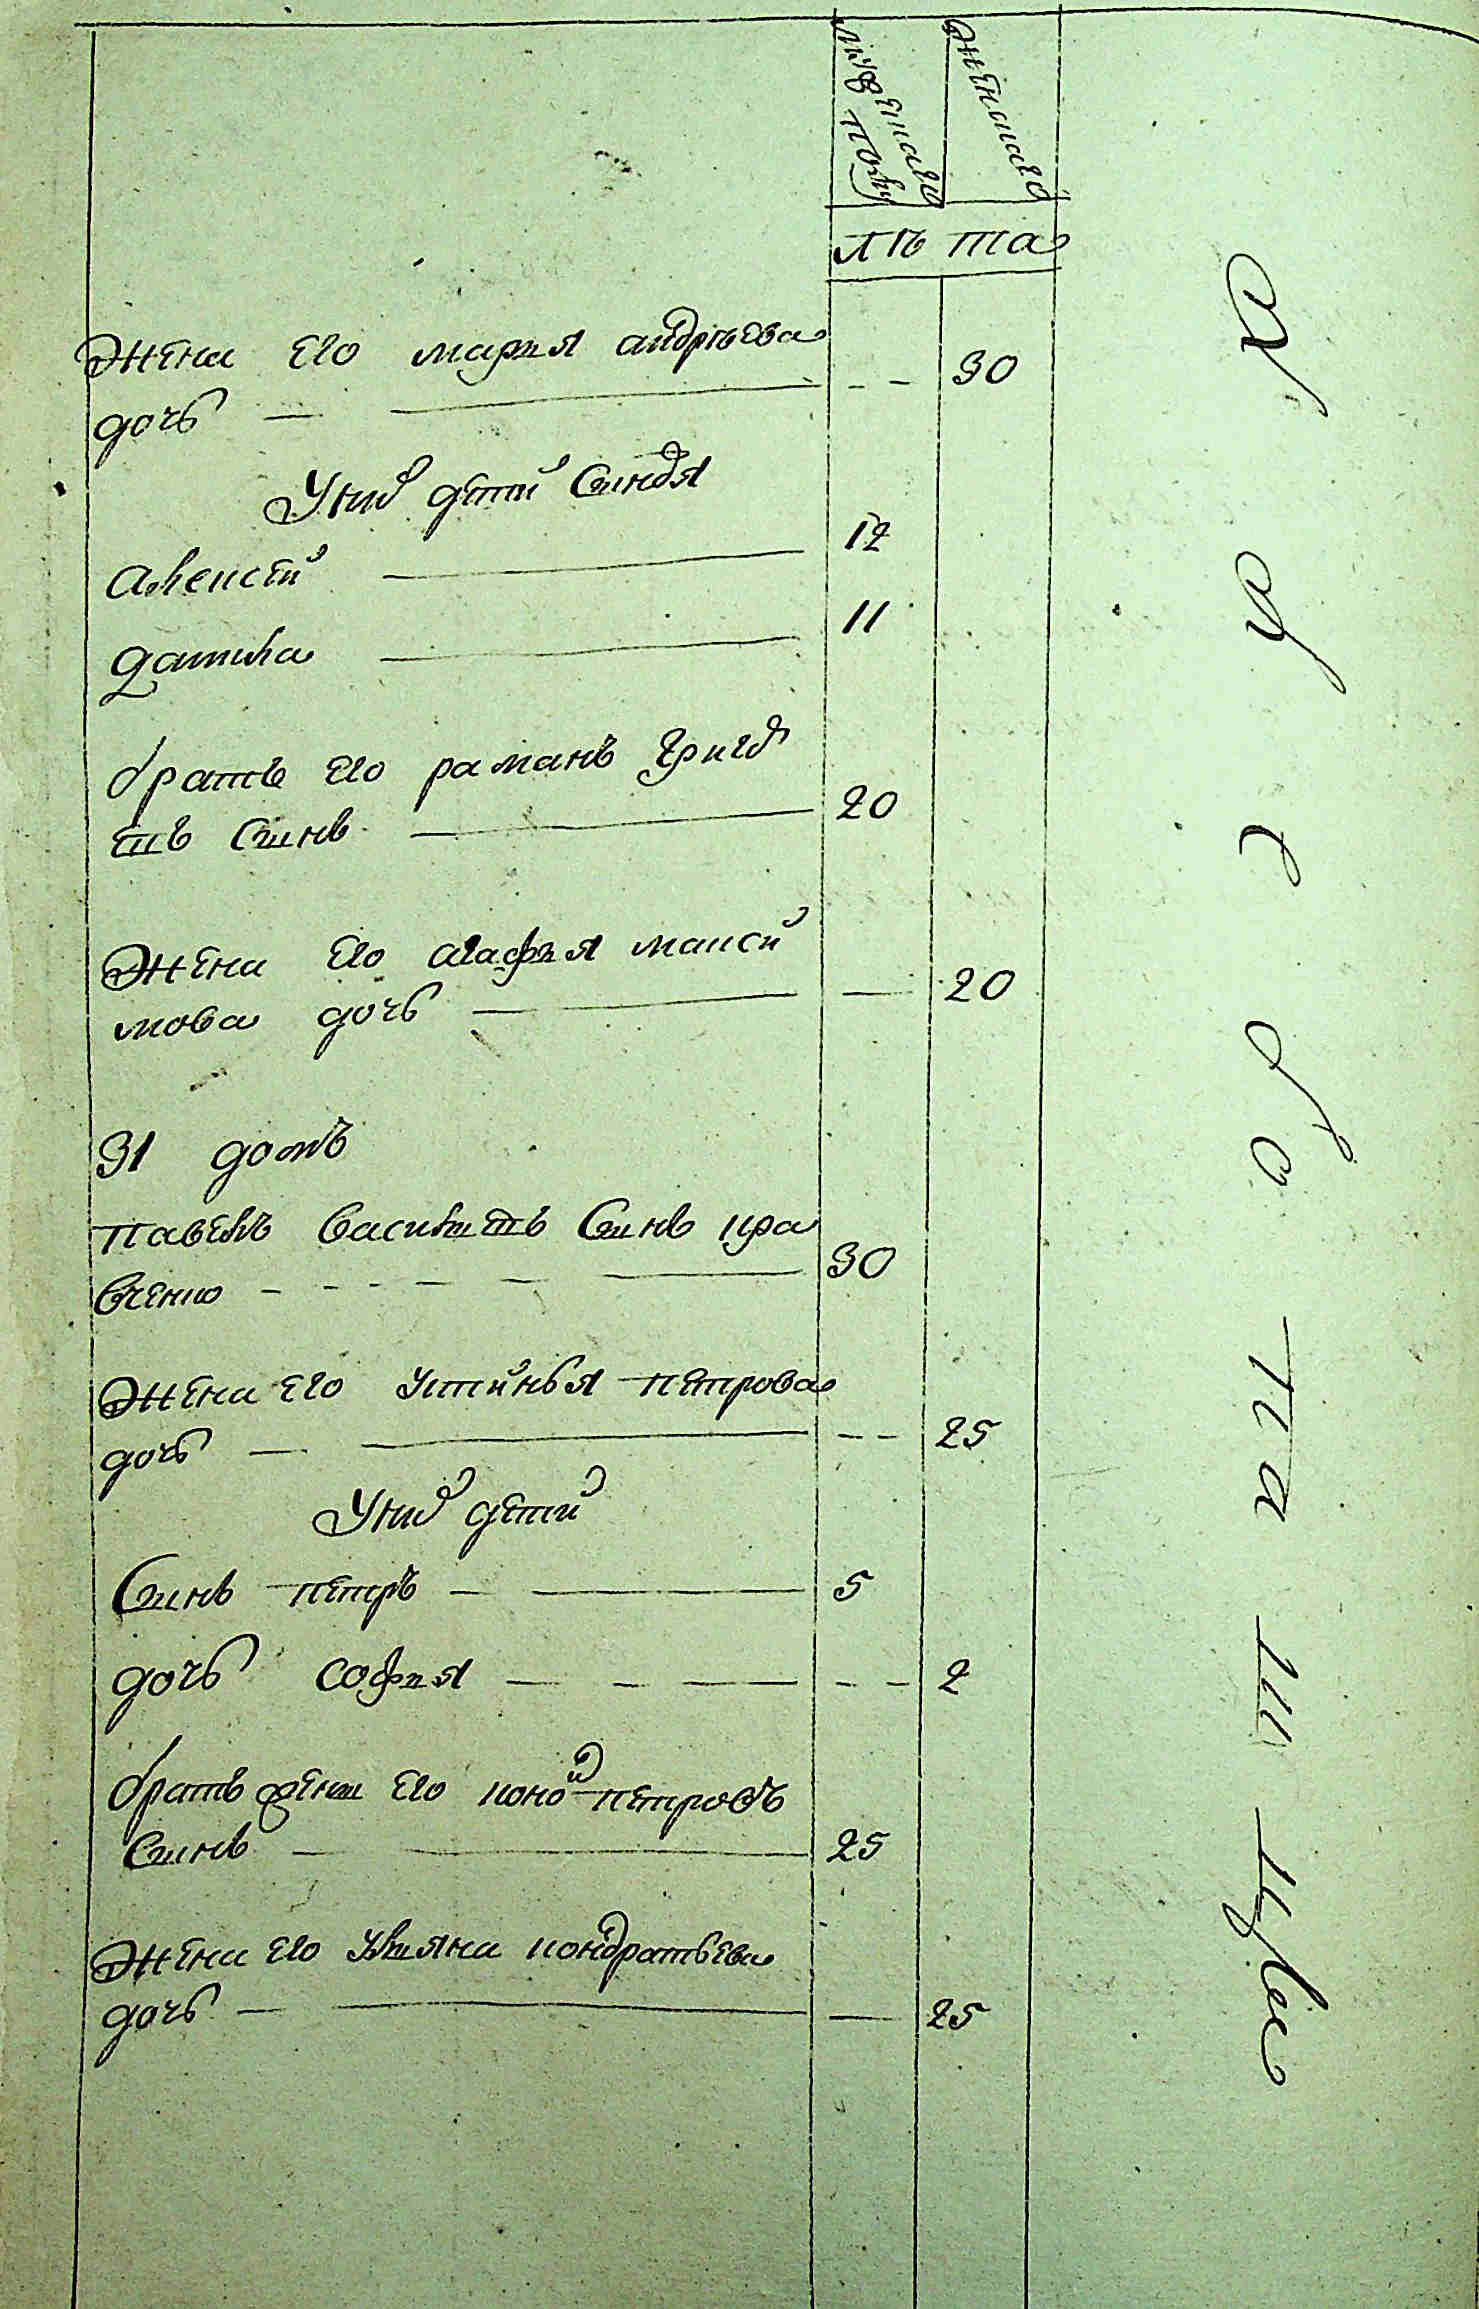 мужескаго полу
женскаго
лѣта
жена его марья андрѣева
дочь 30
У них дети Синовя
алексей 12
данила 11
братъ его раманъ Григо
евъ Синъ 20
жена его агафья макси
мова дочь 20
31 домъ
павелъ васильевъ Синъ кра
вченко 30
жена его устинья петрова
дочь 25
У них дети
Синъ петръ 5
дочь софья 2
братъ жены его конон петровъ
Синъ 25
жена его ульяна кондратьева
дочь 25